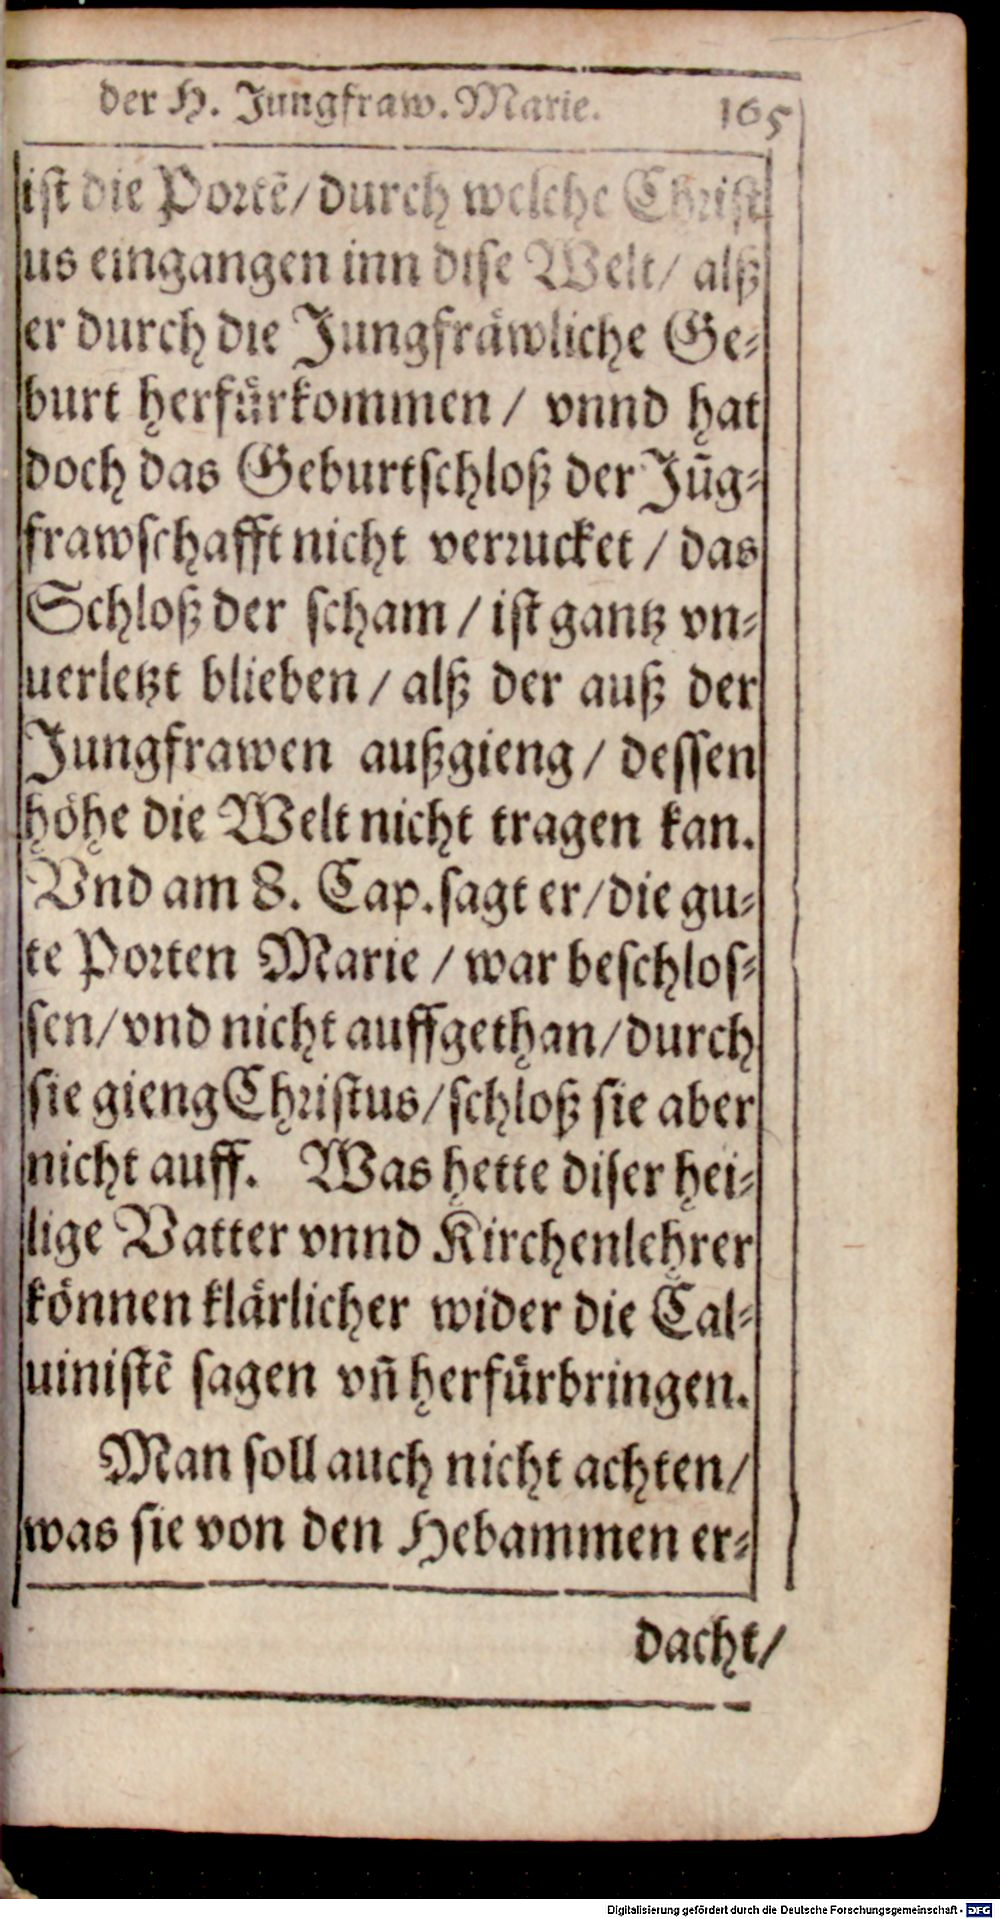 der H. Jungfraw. Marie. 165
ist die Portẽ/ durch welche Christ
us eingangen inn dise Welt/ alß
er durch die Jungfräwliche Ge-
burt herfürkommen / vnnd hat
doch das Geburtschloß der Jũg-
frawschafft nicht verrucket / das
Schloß der scham / ist gantz vn-
uerletzt blieben / alß der auß der
Jungfrawen außgieng / dessen
höhe die Welt nicht tragen kan.
Vnd am 8. Cap. sagt er/ die gu-
te Porten Marie / war beschlos-
sen/ vnd nicht auffgethan/ durch
sie gieng Christus/ schloß sie aber
nicht auff. Was hette diser hei-
lige Vatter vnnd Kirchenlehrer
können klärlicher wider die Cal-
uinistẽ sagen vñ herfürbringen.
Man soll auch nicht achten/
was sie von den Hebammen er-
dacht/
Digitalisierung gefördert durch die Deutsche Forschungsgemeinschaft - DFG